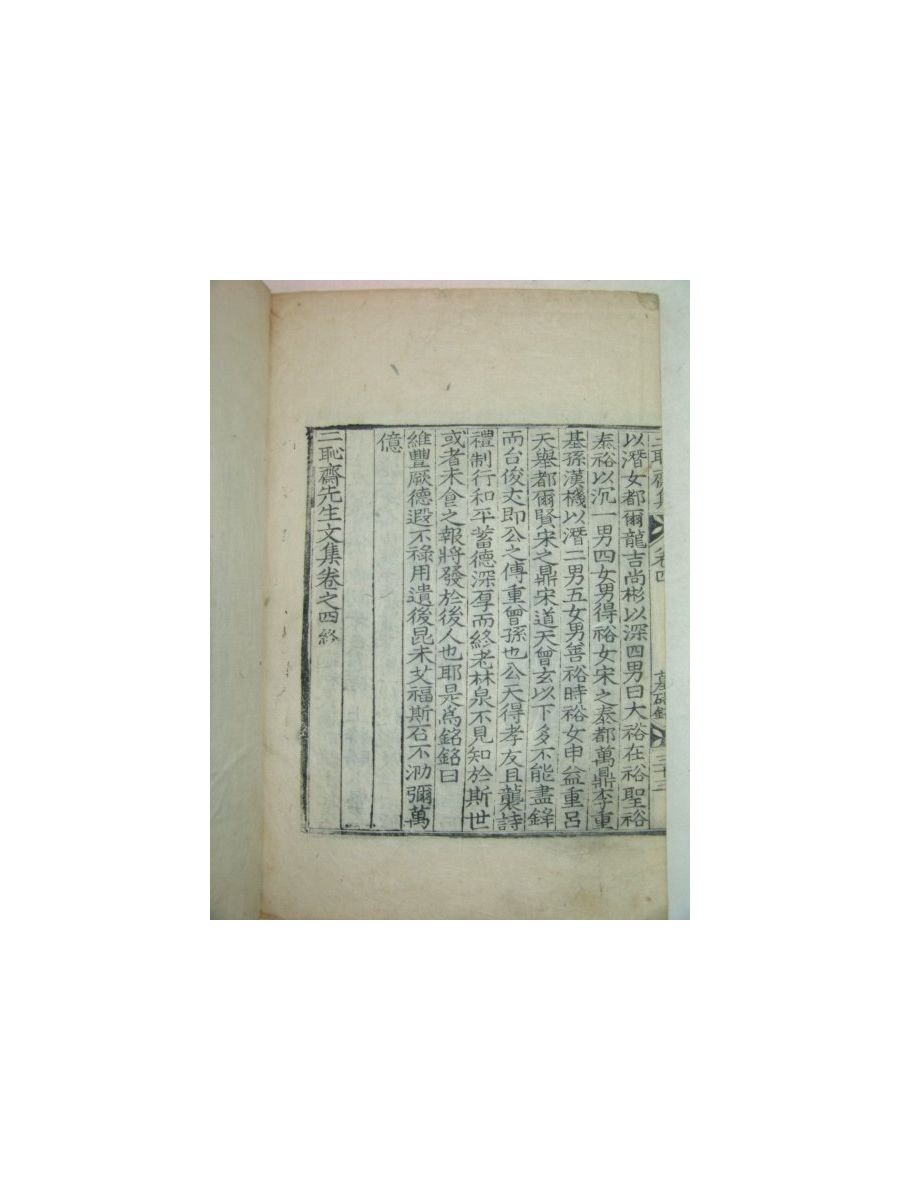 三恥齋集 卷四 墓碣銘 三十三
以潛女都爾龍吉尚彬以深四男曰大裕在裕聖裕
泰裕以沉一男四女男得裕女宋之泰都萬鼎李重
基孫漢機以潛二男五女男善裕時裕女申益重呂
天舉都爾賢宋之鼎宋道天曾玄以下多不能盡錄
而台俊丈即公之傳重曾孫也公天得孝友且襲詩
禮制行和平蓄德深厚而終老林泉不見知於斯世
或者未食之報將發於後人也耶是爲銘銘曰
維豐厥德遐不祿用遺後昆未艾福斯石不泐彌萬
億
三恥齋先生文集卷之四終